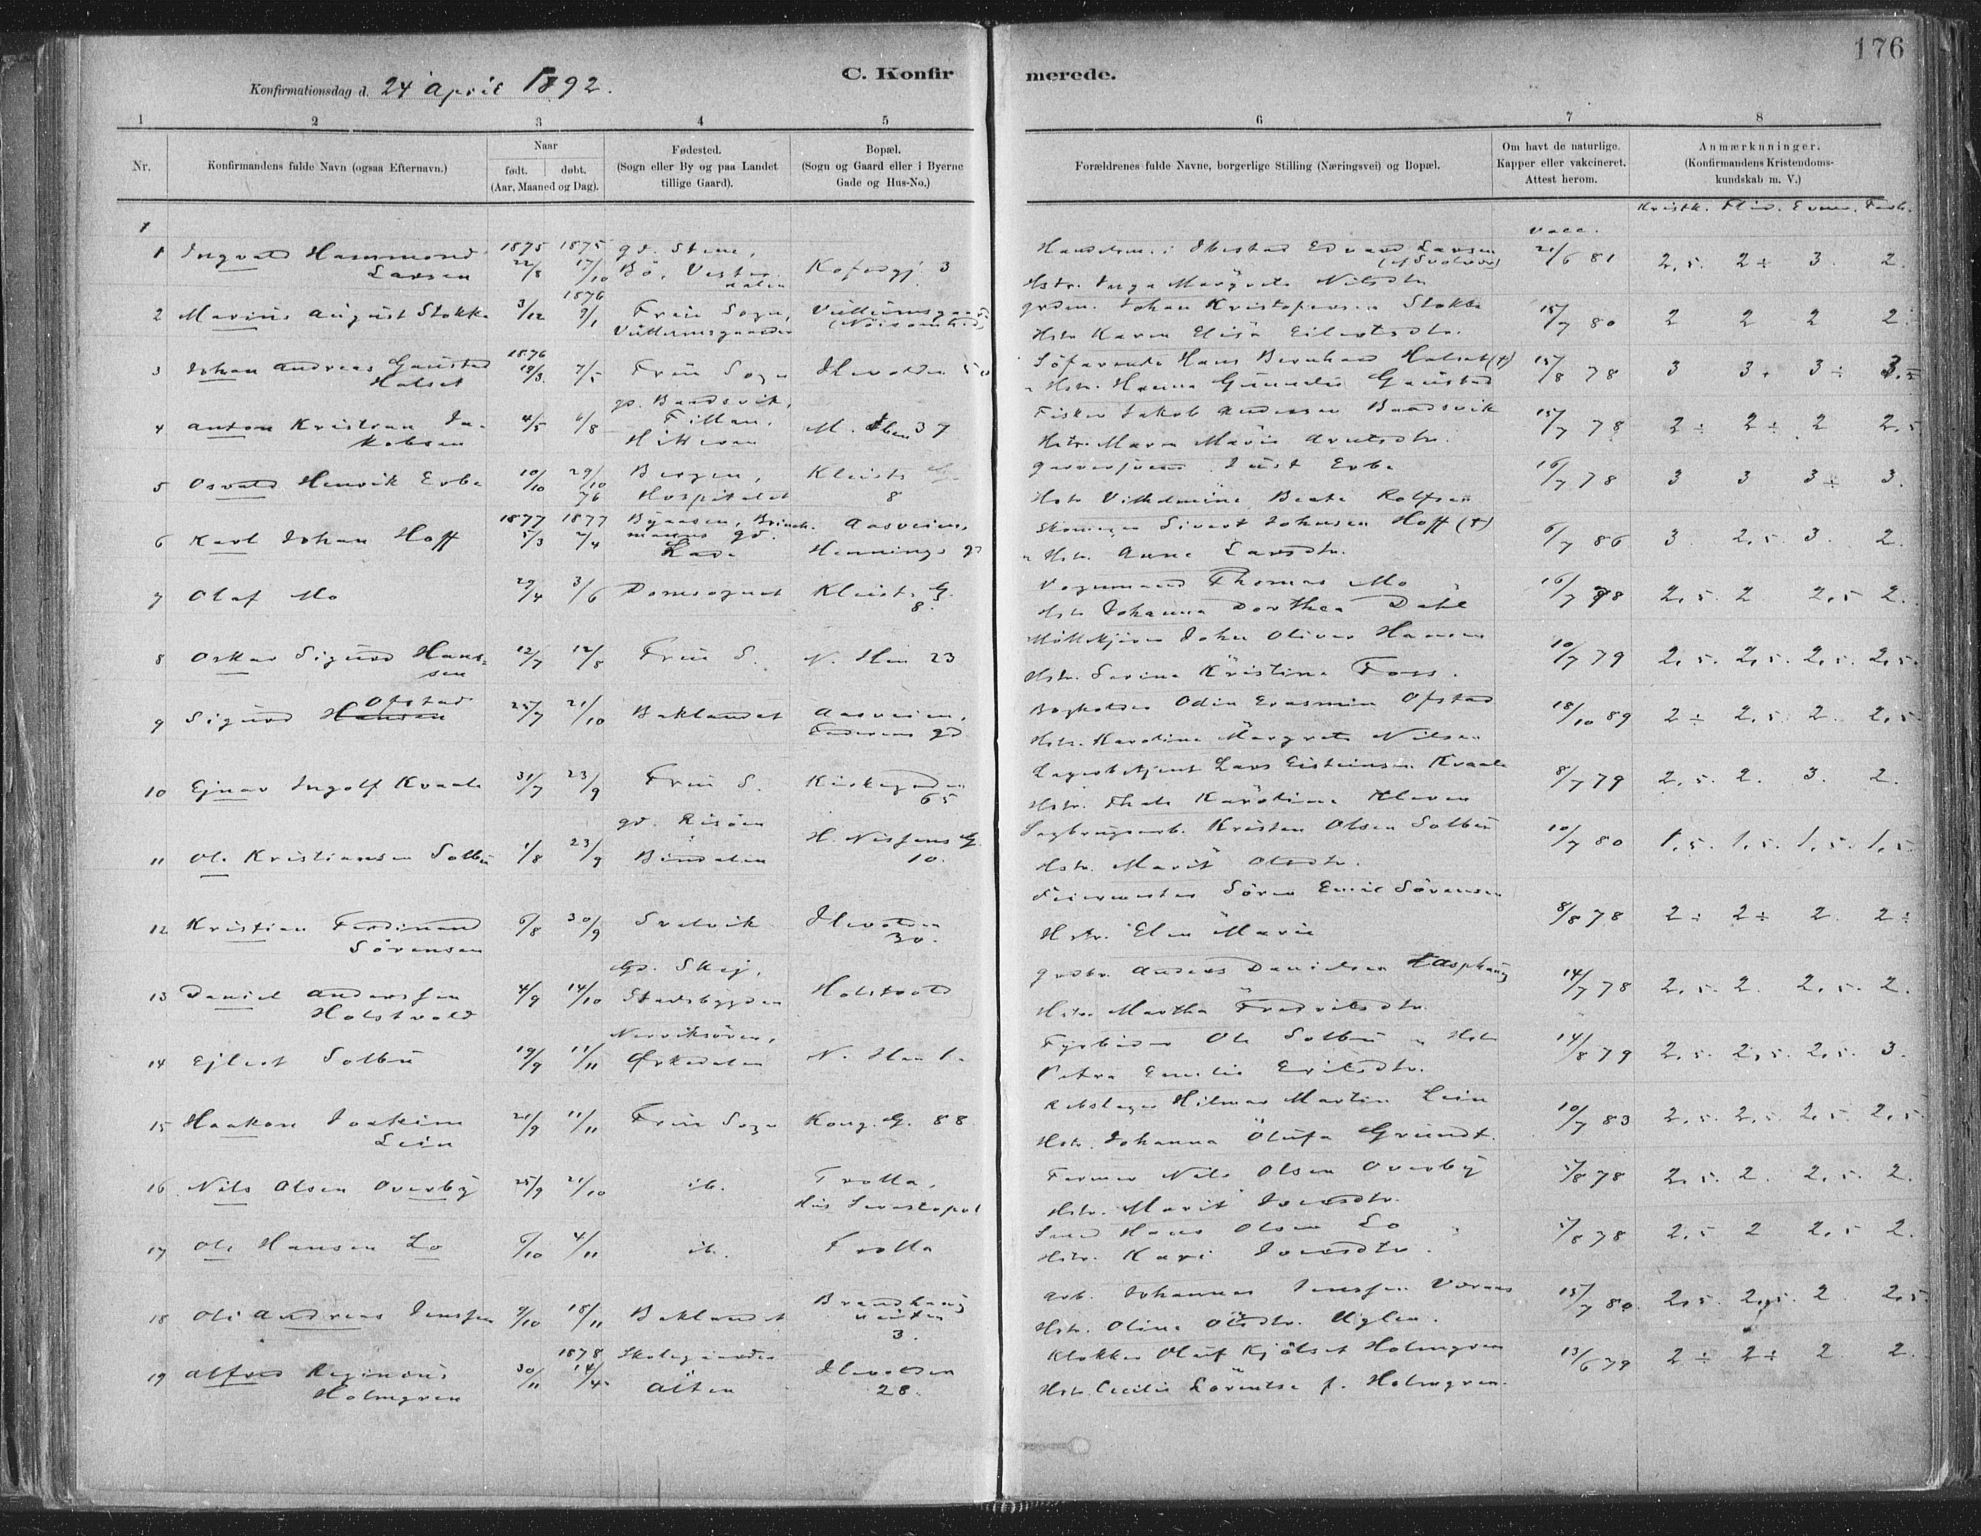 176
C. Konfirmerede.
Konfirmationsdag d. 24 April 1892.
1 2 3 4 5 6 7 8
Nr.
Konfirmandens fulde Navn (ogsaa Efternavn.)
Naar
født. døbt.
(Aar, Maaned og Dag).
Fødested.
(Sogn eller By og paa Landet
tillige Gaard).
Bopæl.
(Sogn og Gaard eller i Byerne
Gade og Hus-No.)
Forældrenes fulde Navne, borgerlige Stilling (Næringsvei) og Bopæl.
Om havt de naturlige.
Kapper eller vakcineret.
Attest herom.
Anmærkninger.
(Konfirmandens Kristendoms-
kundskab m. V.)
Kristk. Flid. Evner. Forh.
1 Ingvald Hammond Larsen 1875 22/8 1875 17/10 gd. Stene, Bö, Vesteraalen 3
Edvard Larsen
Hstr. Inga Margrete Nilsdtr.
vacc. 21/6 81 2,5. 2÷ 3. 2.
2 Marius August Stokke 3/12 1876 9/1 Frue Sogn,
Johan Kristofersen Stokke
Hstr. Karen Elisa Eilertsdtr.
15/7 80 2 2 2 2.
3 Johan Andreas Gaustad Halset 1876 19/3 7/5 Frue Sogn Ilevolden 50
Söfarende Hans Bernhard Halset (†)
Hstr. Hanna Gaustad
15/8 78 3 3. 3÷
4 Anton Kristian Jakobsen 4/5 6/8 gd. Baadsvik, Fillan, Hitteren
Fisker Jakob Andersen Baadsvik
Hstr. Maren Marie
15/7 78 2÷ 2÷ 2 2,5
5 Osvald Henrik Erbe 10/10 29/10 76 Bergen, Hospitalet Kleists G. 8
Just Erbe
Hstr. Vilhelmine Beate Rolfsen
16/7 78 3 3 3÷ 3.
6 Karl Johan Hoff 1877 5/3 1877 2/4 Aasveien, Hennings gd
Sivert Johnsen Hoff (†)
Hstr. Anne Larsdtr.
6/7 86 3. 2,5 3. 2.
7 Olaf Mo 29/4 3/6 Domsognet Kleists G. 8.
Vognmand Thomas Mo
Hstr. Johanna Dorthea Dahl
16/7 78 2,5. 2 2,5 2.
8 Oskar Sigurd Hansen 12/7 12/8 Frue S. N. Ilen 23
John Oliver Hansen
Hstr. Serine Kristine Foss.
10/7 79 2,5. 2,5. 2,5. 2,5.
9 Sigurd Hansen Ofstad 25/7 21/10 Baklandet Aasveien,
Bogholder Odin Erasmin Ofstad
Hstr. Karoline Margrete Nilsen
18/10 89 2÷ 2,5. 2. 2,5.
10 Ejnar Ingolf Kvaale 31/7 23/9 Frue S. Kirkegaden 65
Lars Eisteinsen Kvaale
Hstr. Karoline Kleven
8/7 79 2,5. 2. 3. 2.
11 Ole Kristiansen Solbu 1/8 23/9 gd. Risöen Bindalen H. Nissens G. 10.
Kristen Olsen Solbu
Hstr. Marit Olsdtr.
10/7 80 1,5. 1,5. 1,5. 1,5.
12 Kristian Ferdinand Sörensen 6/8 30/9 Svelvik Ilevolden 30.
Feiermester Sören Emil Sörensen
Hstr. Elen Marie
8/8 78 2÷ 2÷ 2. 2÷
13 Daniel Anderssen Holstvold 4/9 14/10 Gd. Skej, Stadsbygden Holstvold
Anders Danielsen
Hstr. Martha Fredriksdtr.
14/7 78 2,5. 2. 2,5. 2.
14 Ejlert Solbu 19/9 11/11 Orkedalen N. Ilen 1.
Fyrböder Ole Solbu Hstr.
Petra Emilie Erilsdtr.
14/8 79 2,5. 2,5. 2,5. 3.
15 Haakon Joakim Lein 21/9 11/11 Frue Sogn Kong. G. 88
Rebslager Hilmar Martin Lein
Hstr. Johanna Olufa Grundt.
10/7 83 2,5. 2,5. 2,5. 2,5
16 Nils Olsen Overby 25/9 21/10 ib. Trolla,
Former Nils Olsen Overby
Hstr. Marit Iversdtr.
5/8 78 2,5 2. 2,5. 2.
17 Ole Hansen Lo 6/10 4/11 ib. Trolla
Smed Hans Olsen Lo
Hstr. Kari Iversdtr.
5/8 78 2,5 2 2,5 2.
18 Ole Andreas Jenssen 9/10 18/11 Baklandet 3.
Arb. Johannes Jenssen
Hstr. Oline Olsdtr. Uglen.
15/7 80. 2,5. 2,5. 2. 2,5
19 Alfred Reginius Holmgren 30/11 1878 14/4 Skolegaarden Alten Ilevolden 28.
Klokker Oluf Kjölset Holmgren
Hstr. Cecilie Lorentse f. Holmgren.
13/6 79 2÷ 2÷ 2. 2.